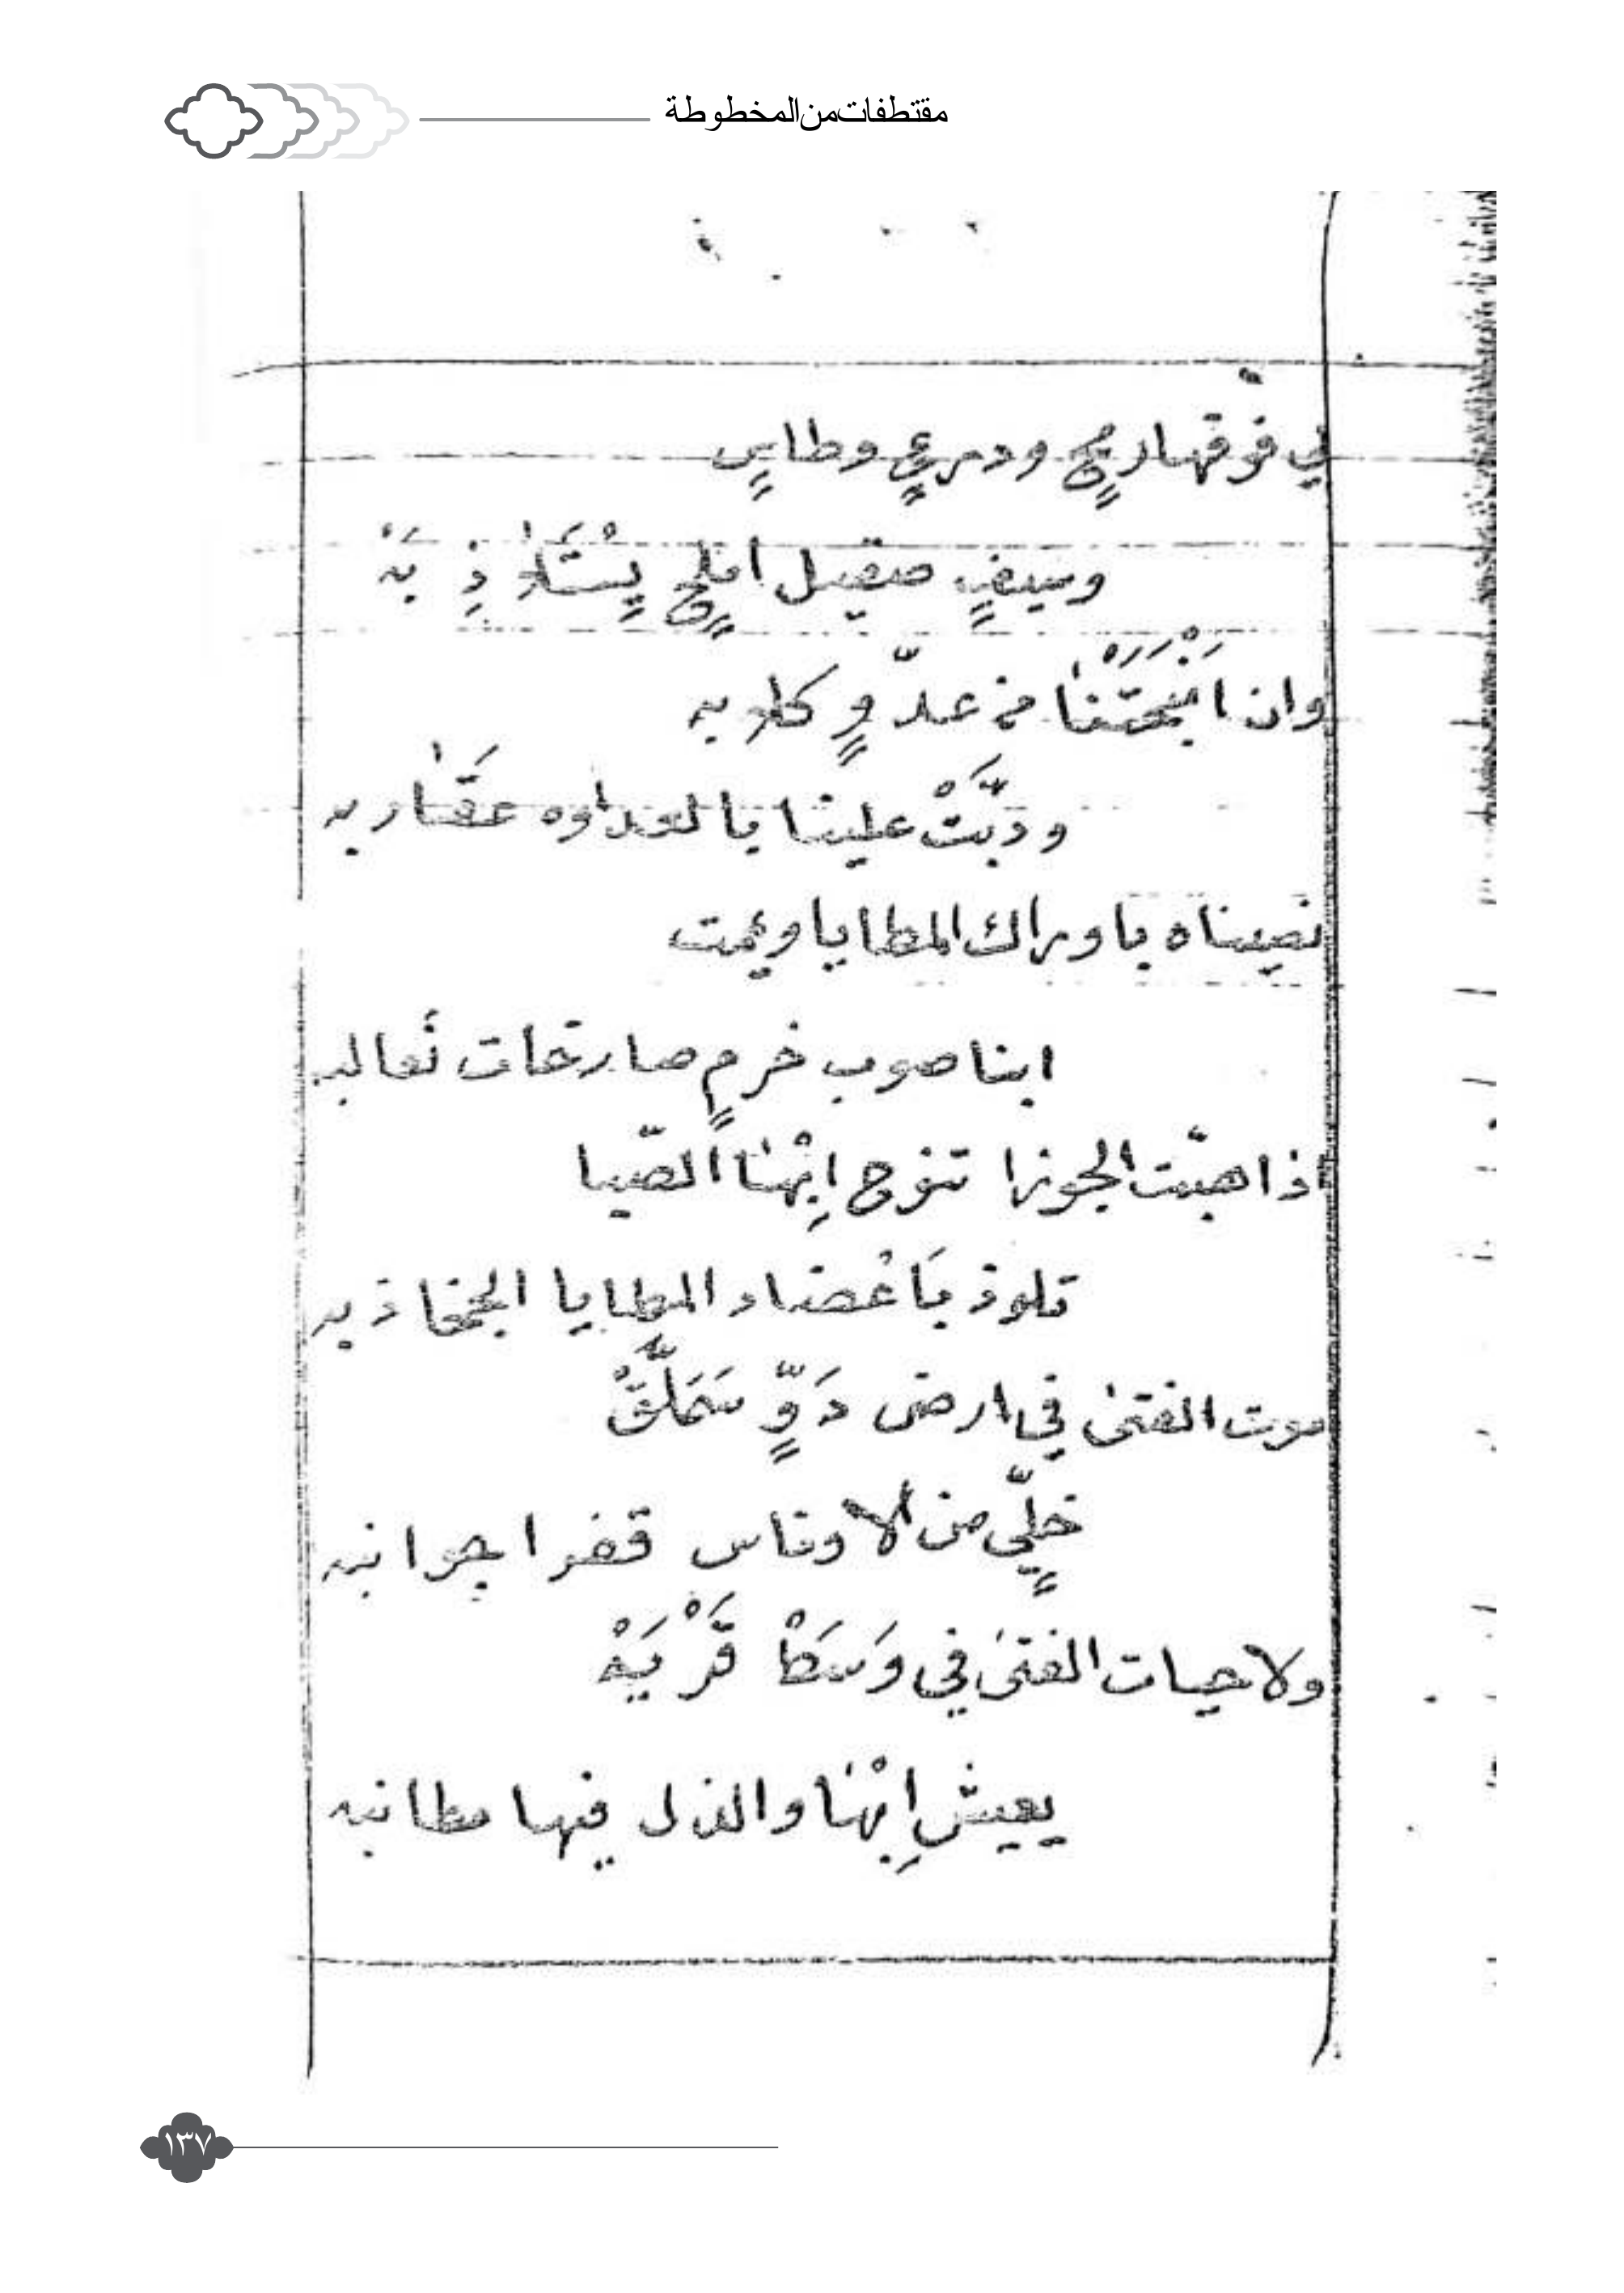 مقتطفات من المخطوطة
في فوقها رمحٍ ودرعٍ وطاسٍ
وسيفٍ صقيل املحٍ يِسْتَلاذِ بَهْ
وان انبحَتْنا من عدوٍّ كلابه
ودبَّتْ علينا بالعداوه عقَاربه
نصيناه باوراك المطايا ويممت
ابنا صوب خرمٍ صارخات نعالبه
اذا هبّت الجوزا تنوح اِبْهَا الصّبا
تلوذ بَاعْضاد المطايا الجخاذبه
موت الفتى في ارض دَوٍّ سَمَلَّقْ
خليٍّ من الاوناس قفرا جوانبه
ولا حيات الفتى في وَسَطْ قَرْيَهْ
يعيش اِبْهَا والذل فيها مطانبه
١٣٧